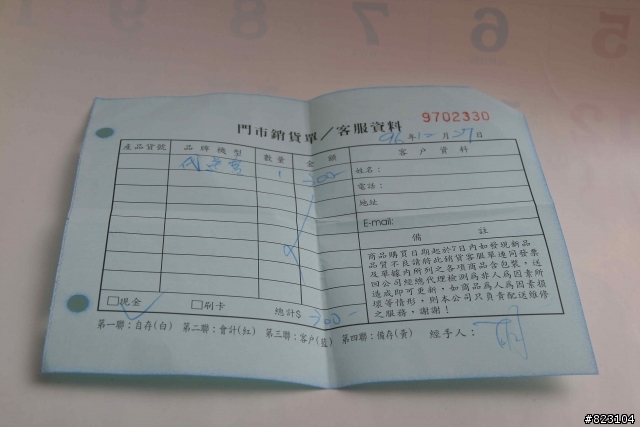 5
6
7
8
9
9702330
門市銷貨單/客服資料
96年12月27日
產品貨號 品牌機型 數量 金額 客戶資料
1
姓名:
電話:
地址
E-mail:
備註
商品購買日期起於7日內如發現新品
品質不良請將此銷貨客服單連同發票
及單據內所列之各項商品含包裝,送
回公司經總代理檢測為非人為因素所
造成即可更新,如商品為人為因素損
壞等情形,則本公司只負責配送維修
之服務,謝謝!
□現金 □刷卡 總計$
第一聯:自存(白) 第二聯:會計(紅) 第三聯:客戶(藍) 第四聯:備存(黃) 經手人:
#823104